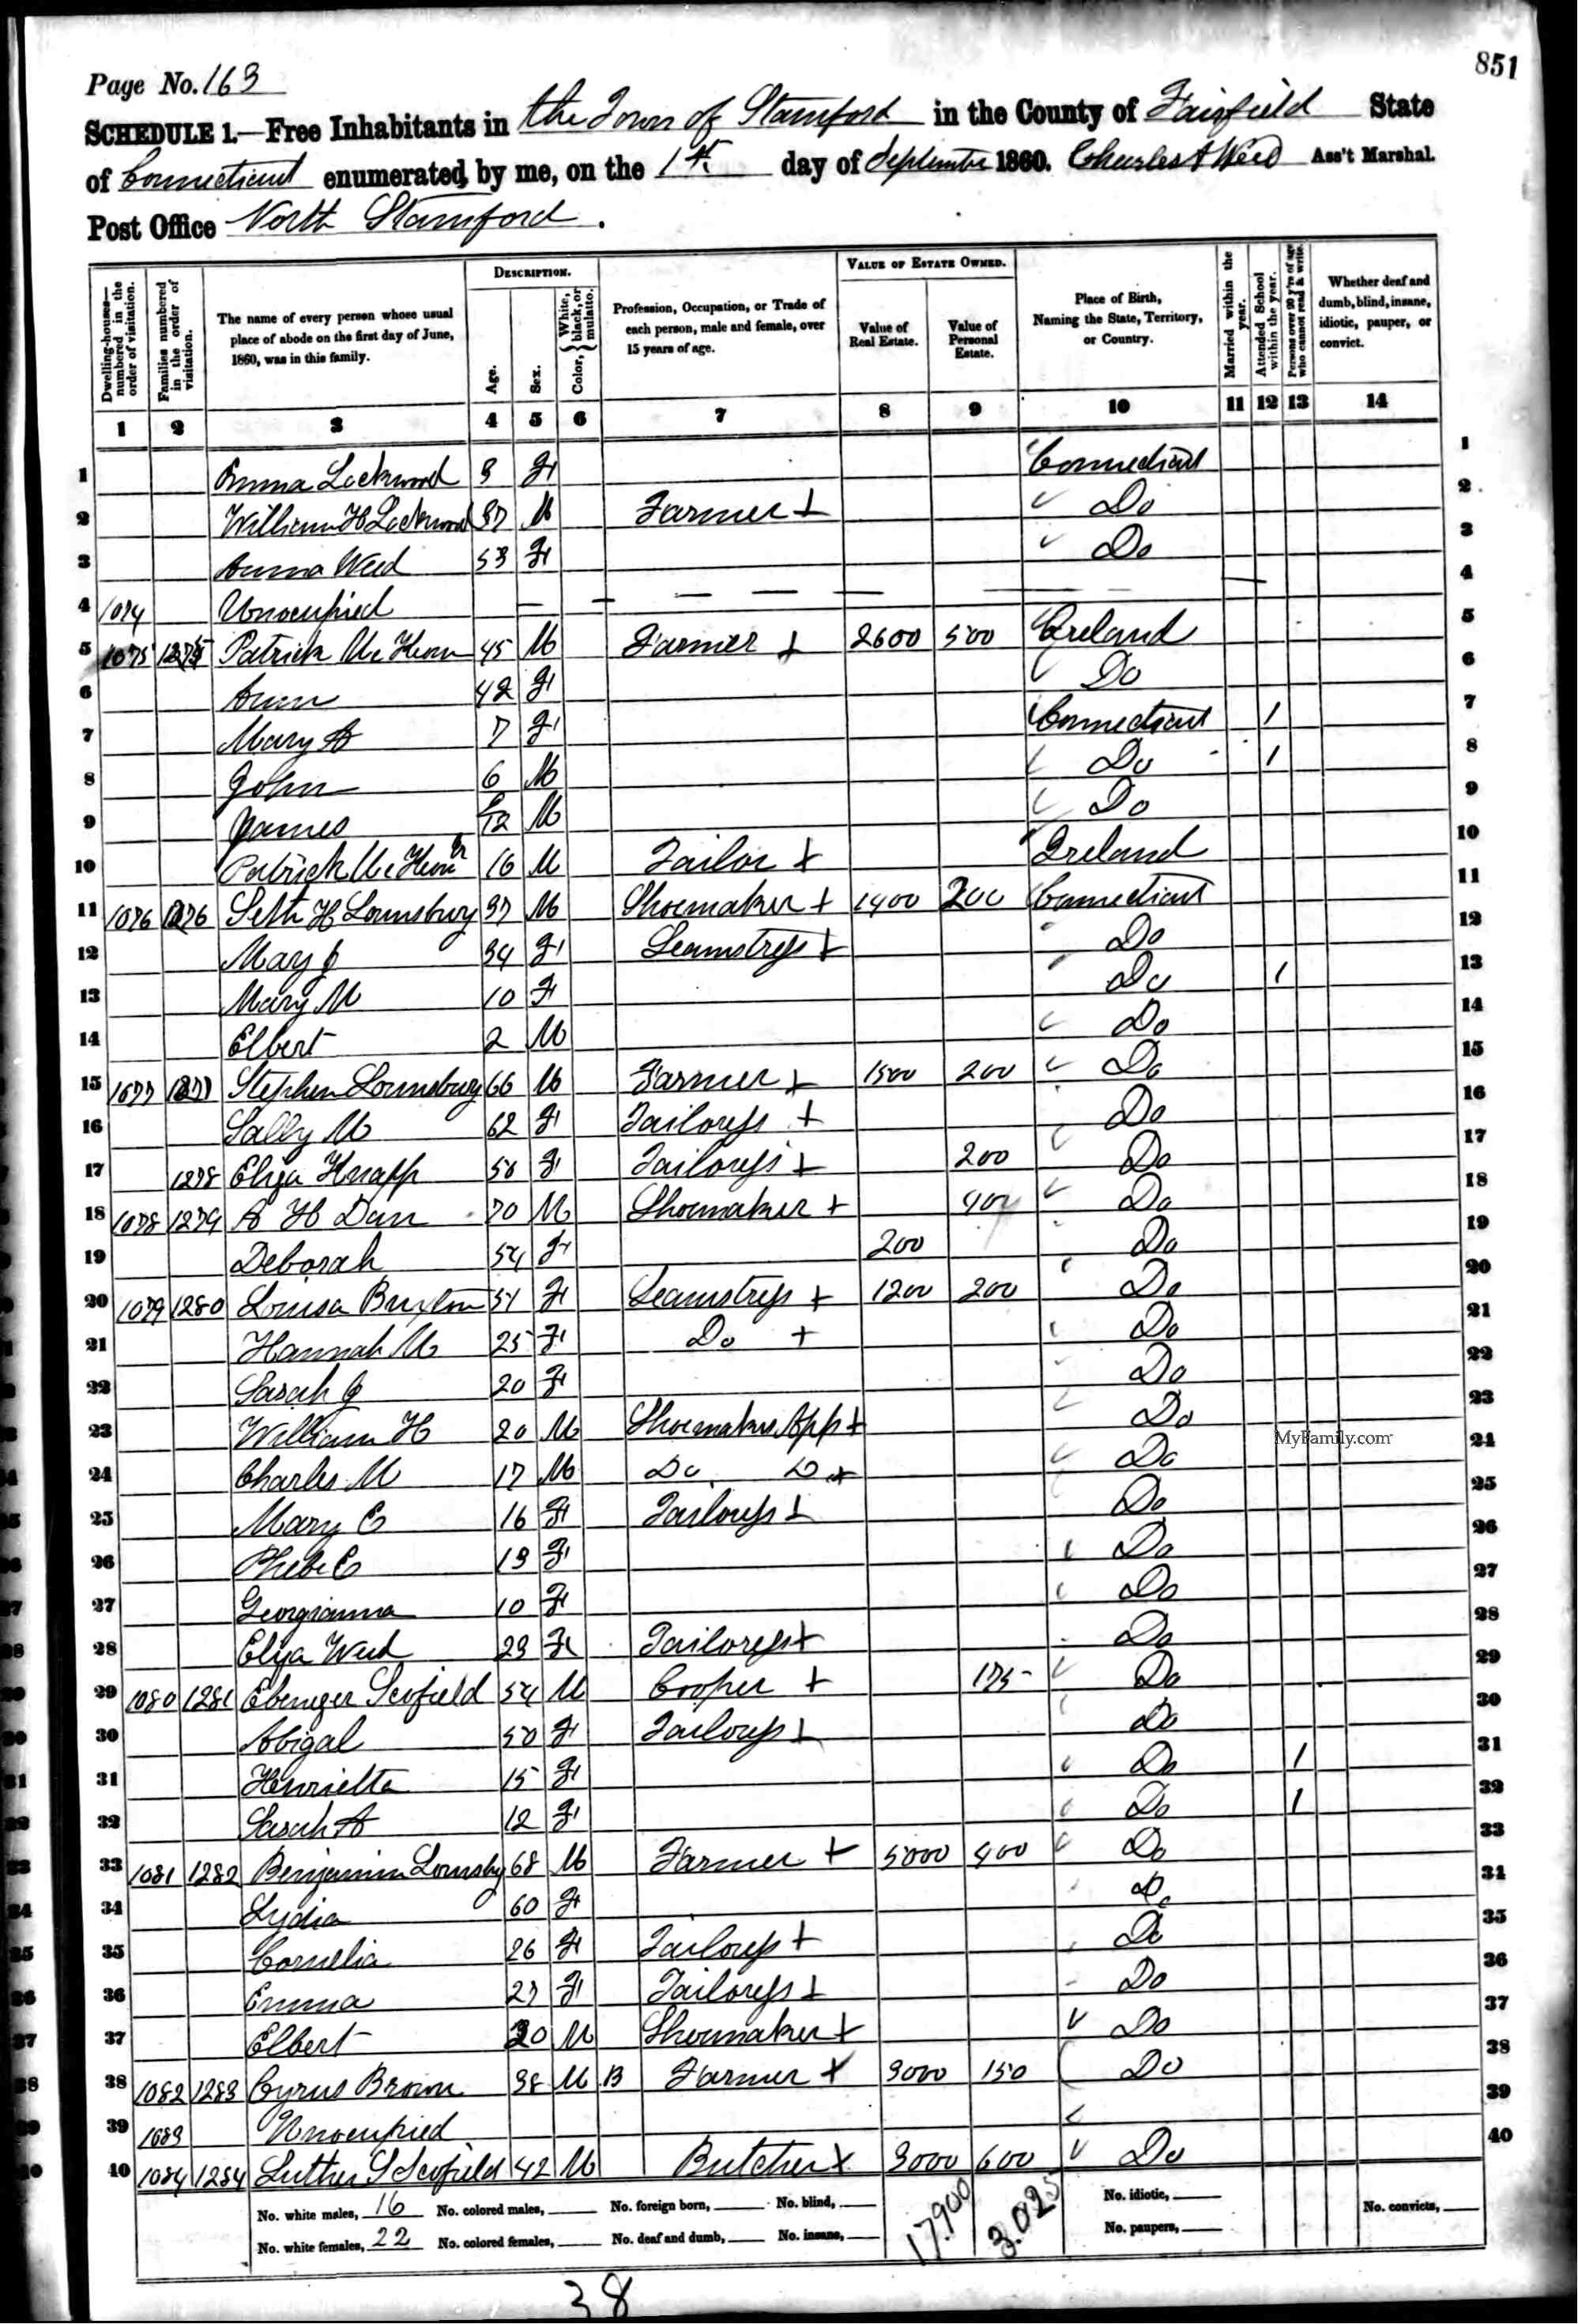 851
Page No. 163
SCHEDULE 1.—Free Inhabitants in the Town of Stamford in the County of Fairfield State
of Connecticut enumerated by me, on the 1st day of September 1860. Charles A Weed Ass't Marshal.
Post Office North Stamford.
Dwelling-houses—numbered in the order of visitation. Families numbered in the order of visitation. The name of every person whose usual place of abode on the first day of June, 1860, was in this family. DESCRIPTION. Age. Sex. Color, White, black, or mulatto. Profession, Occupation, or Trade of each person, male and female, over 15 years of age. VALUE OF ESTATE OWNED. Value of Real Estate. Value of Personal Estate. Place of Birth, Naming the State, Territory, or Country. Married within the year. Attended School within the year. Persons over 20 y'rs of age who cannot read & write. Whether deaf and dumb, blind, insane, idiotic, pauper, or convict.
1 2 3 4 5 6 7 8 9 10 11 12 13 14
1 Emma Lockwood 3 F Connecticut 1
2 William H Lockwood 37 M Farmer Do 2
3 Anna Weed 53 F Do 3
4 1074 Unoccupied 4
5 1075 1275 Patrick Mc 45 M Farmer 2600 500 Ireland 5
6 Ann 42 F Do 6
7 Mary A 7 F Connecticut 1 7
8 John 6 M Do 1 8
9 James /12 M Do 9
10 Patrick Mc Jr 16 M Tailor Ireland 10
11 1076 1276 Seth H Lounsbury 37 M Shoemaker 1400 200 Connecticut 11
12 Mary J 34 F Seamstress Do 12
13 Mary M 10 F Do 1 13
14 Elbert 2 M Do 14
15 1077 1277 Stephen Lounsbury 66 M Farmer 1500 200 Do 15
16 Sally M 62 F Tailoress Do 16
17 1278 Eliza Knapp 50 F Tailoress 200 Do 17
18 1078 1279 A H Dan 70 M Shoemaker 400 Do 18
19 Deborah 54 F 200 Do 19
20 1079 1280 Louisa Buxton 51 F Seamstress 1200 200 Do 20
21 Hannah M 25 F Do Do 21
22 Sarah J 20 F Do 22
23 William H 20 M Shoemaker App Do 23
MyFamily.com
24 Charles M 17 M Do Do Do 24
25 Mary E 16 F Tailoress Do 25
26 Phebe E 13 F Do 26
27 Georgianna 10 F Do 27
28 Eliza Weed 23 F Tailoress Do 28
29 1080 1281 Ebenezer Scofield 54 M Cooper 175 Do 29
30 Abigal 50 F Tailoress Do 30
31 Henrietta 15 F Do 1 31
32 Sarah A 12 F Do 1 32
33 1081 1282 Benjamin Lounsby 68 M Farmer 5000 400 Do 33
34 Lydia 60 F Do 34
35 Cornelia 26 F Tailoress Do 35
36 Emma 27 F Tailoress Do 36
37 Elbert 20 M Shoemaker Do 37
38 1082 1283 Cyrus Brown 38 M B Farmer 3000 150 Do 38
39 1083 Unoccupied 39
40 1084 1284 Luther S Scofield 42 M Butcher 3000 600 Do 40
No. white males, 16 No. colored males, No. foreign born, No. blind, 17.900 3.025 No. idiotic, No. convicts,
No. white females, 22 No. colored females, No. deaf and dumb, No. insane, No. paupers,
38